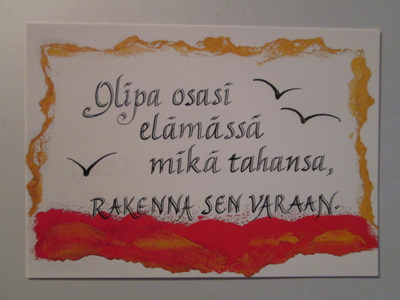 Olipa osasi
elämässä
mikä tahansa,
RAKENNA SEN VARAAN.